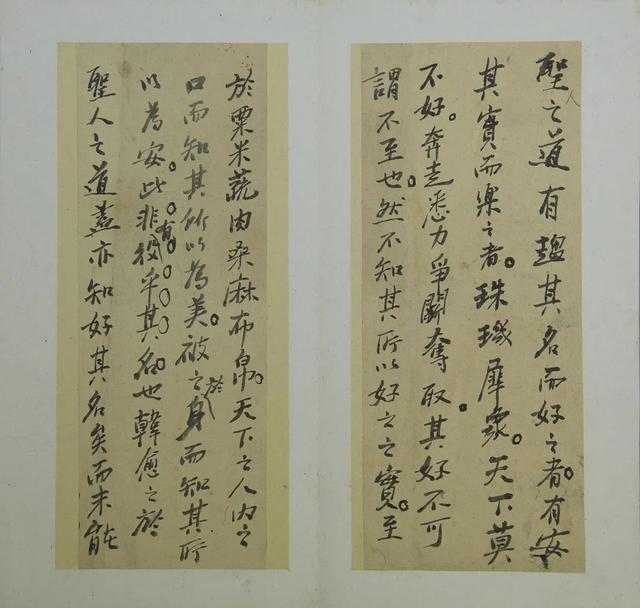 聖人之道有趨其名而好之者。有安
其實而樂之者。珠璣犀象。天下莫
不好。奔走悉力爭鬭奪取。其好不可
謂不至也。然不知其所以好之之實。至
於粟米蔬肉桑麻布帛。天下之人內之
口而知其所以為美。被之於身而知其所
以為安。此非有役乎其名也韓愈之於
聖人之道蓋亦知好其名矣而未能